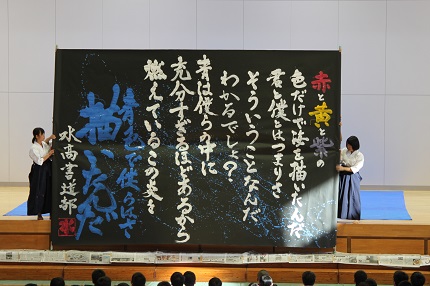 赤と黄と紫の
色だけで海を描いたんだ
君と僕とはつまりさ
そういうことなんだ
わかるでしょ?
青は僕らの中に
充分すぎるほどあるから
燃えているこの炎を
青色で僕らはさ
描いたんだ
水高書道部